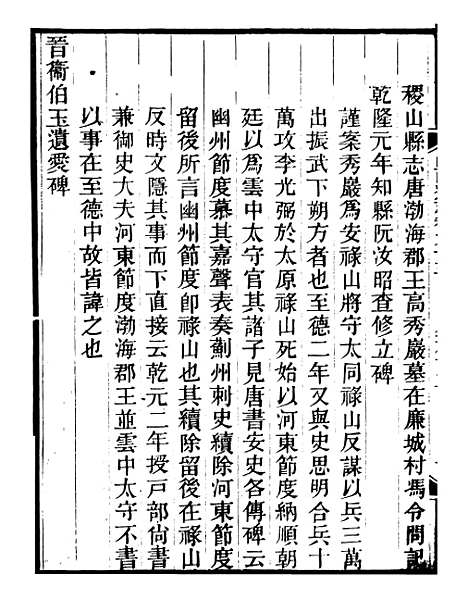 稷山縣志唐渤海郡王高秀巖墓在廉城村馮令問記
乾隆元年知縣阮汝昭查修立碑
謹案秀巖爲安祿山將守大同祿山反謀以兵三萬
出振武下朔方者也至德二年又與史思明合兵十
萬攻李光弼於太原祿山死始以河東節度納順朝
廷以爲雲中太守官其諸子見唐書安史各傳碑云
幽州節度慕其嘉聲表奏薊州刺史續除河東節度
留後所言幽州節度卽祿山也其續除留後在祿山
反時文隱其事而下直接云乾元二年授戸部尙書
兼御史大夫河東節度渤海郡王並雲中太守不書
以事在至德中故皆諱之也
晉衞伯玉遺愛碑